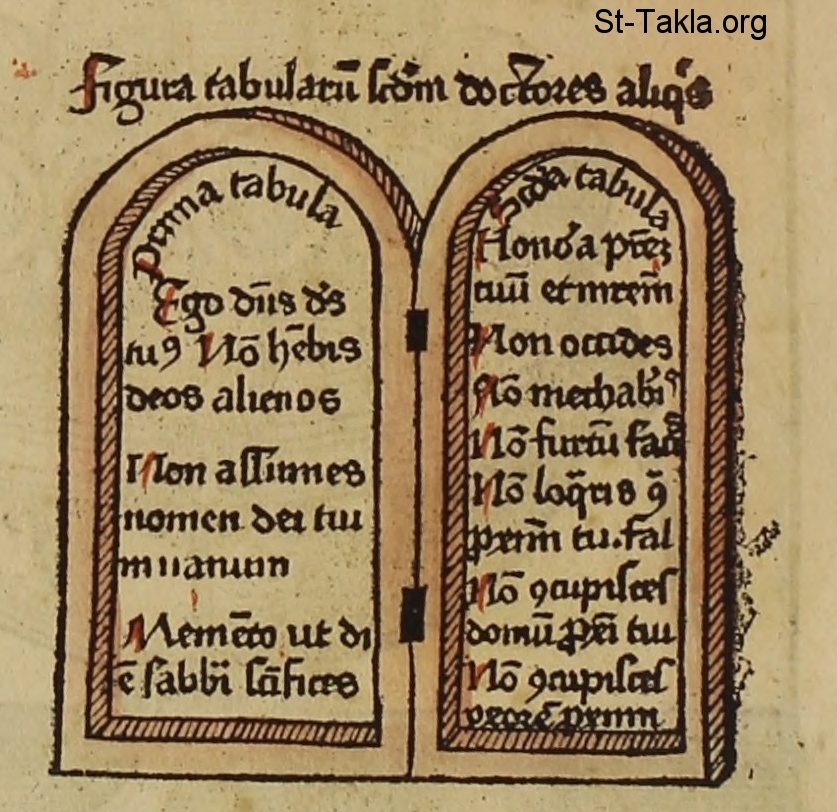 St-Takla.org
Figura tabularū scd̄m doctores aliq̄s
Prima tabula
Ego dn̄s ds̄
tuꝰ Nō hēbis
deos alienos
Non assumes
nomen dei tui
in uanum
Memēto ut di
ē sabbi scīfices
Scd̄a tabula
Honōa prēꝫ
tuū et mrēm
Non occides
Nō mechabis
Nō furtū faciē
Nō loq̄ris ꝯ
ꝓximū tu. fal
Nō ꝯcupisces
domū ꝓxī tui
Nō ꝯcupisces
uxorē ꝓximi